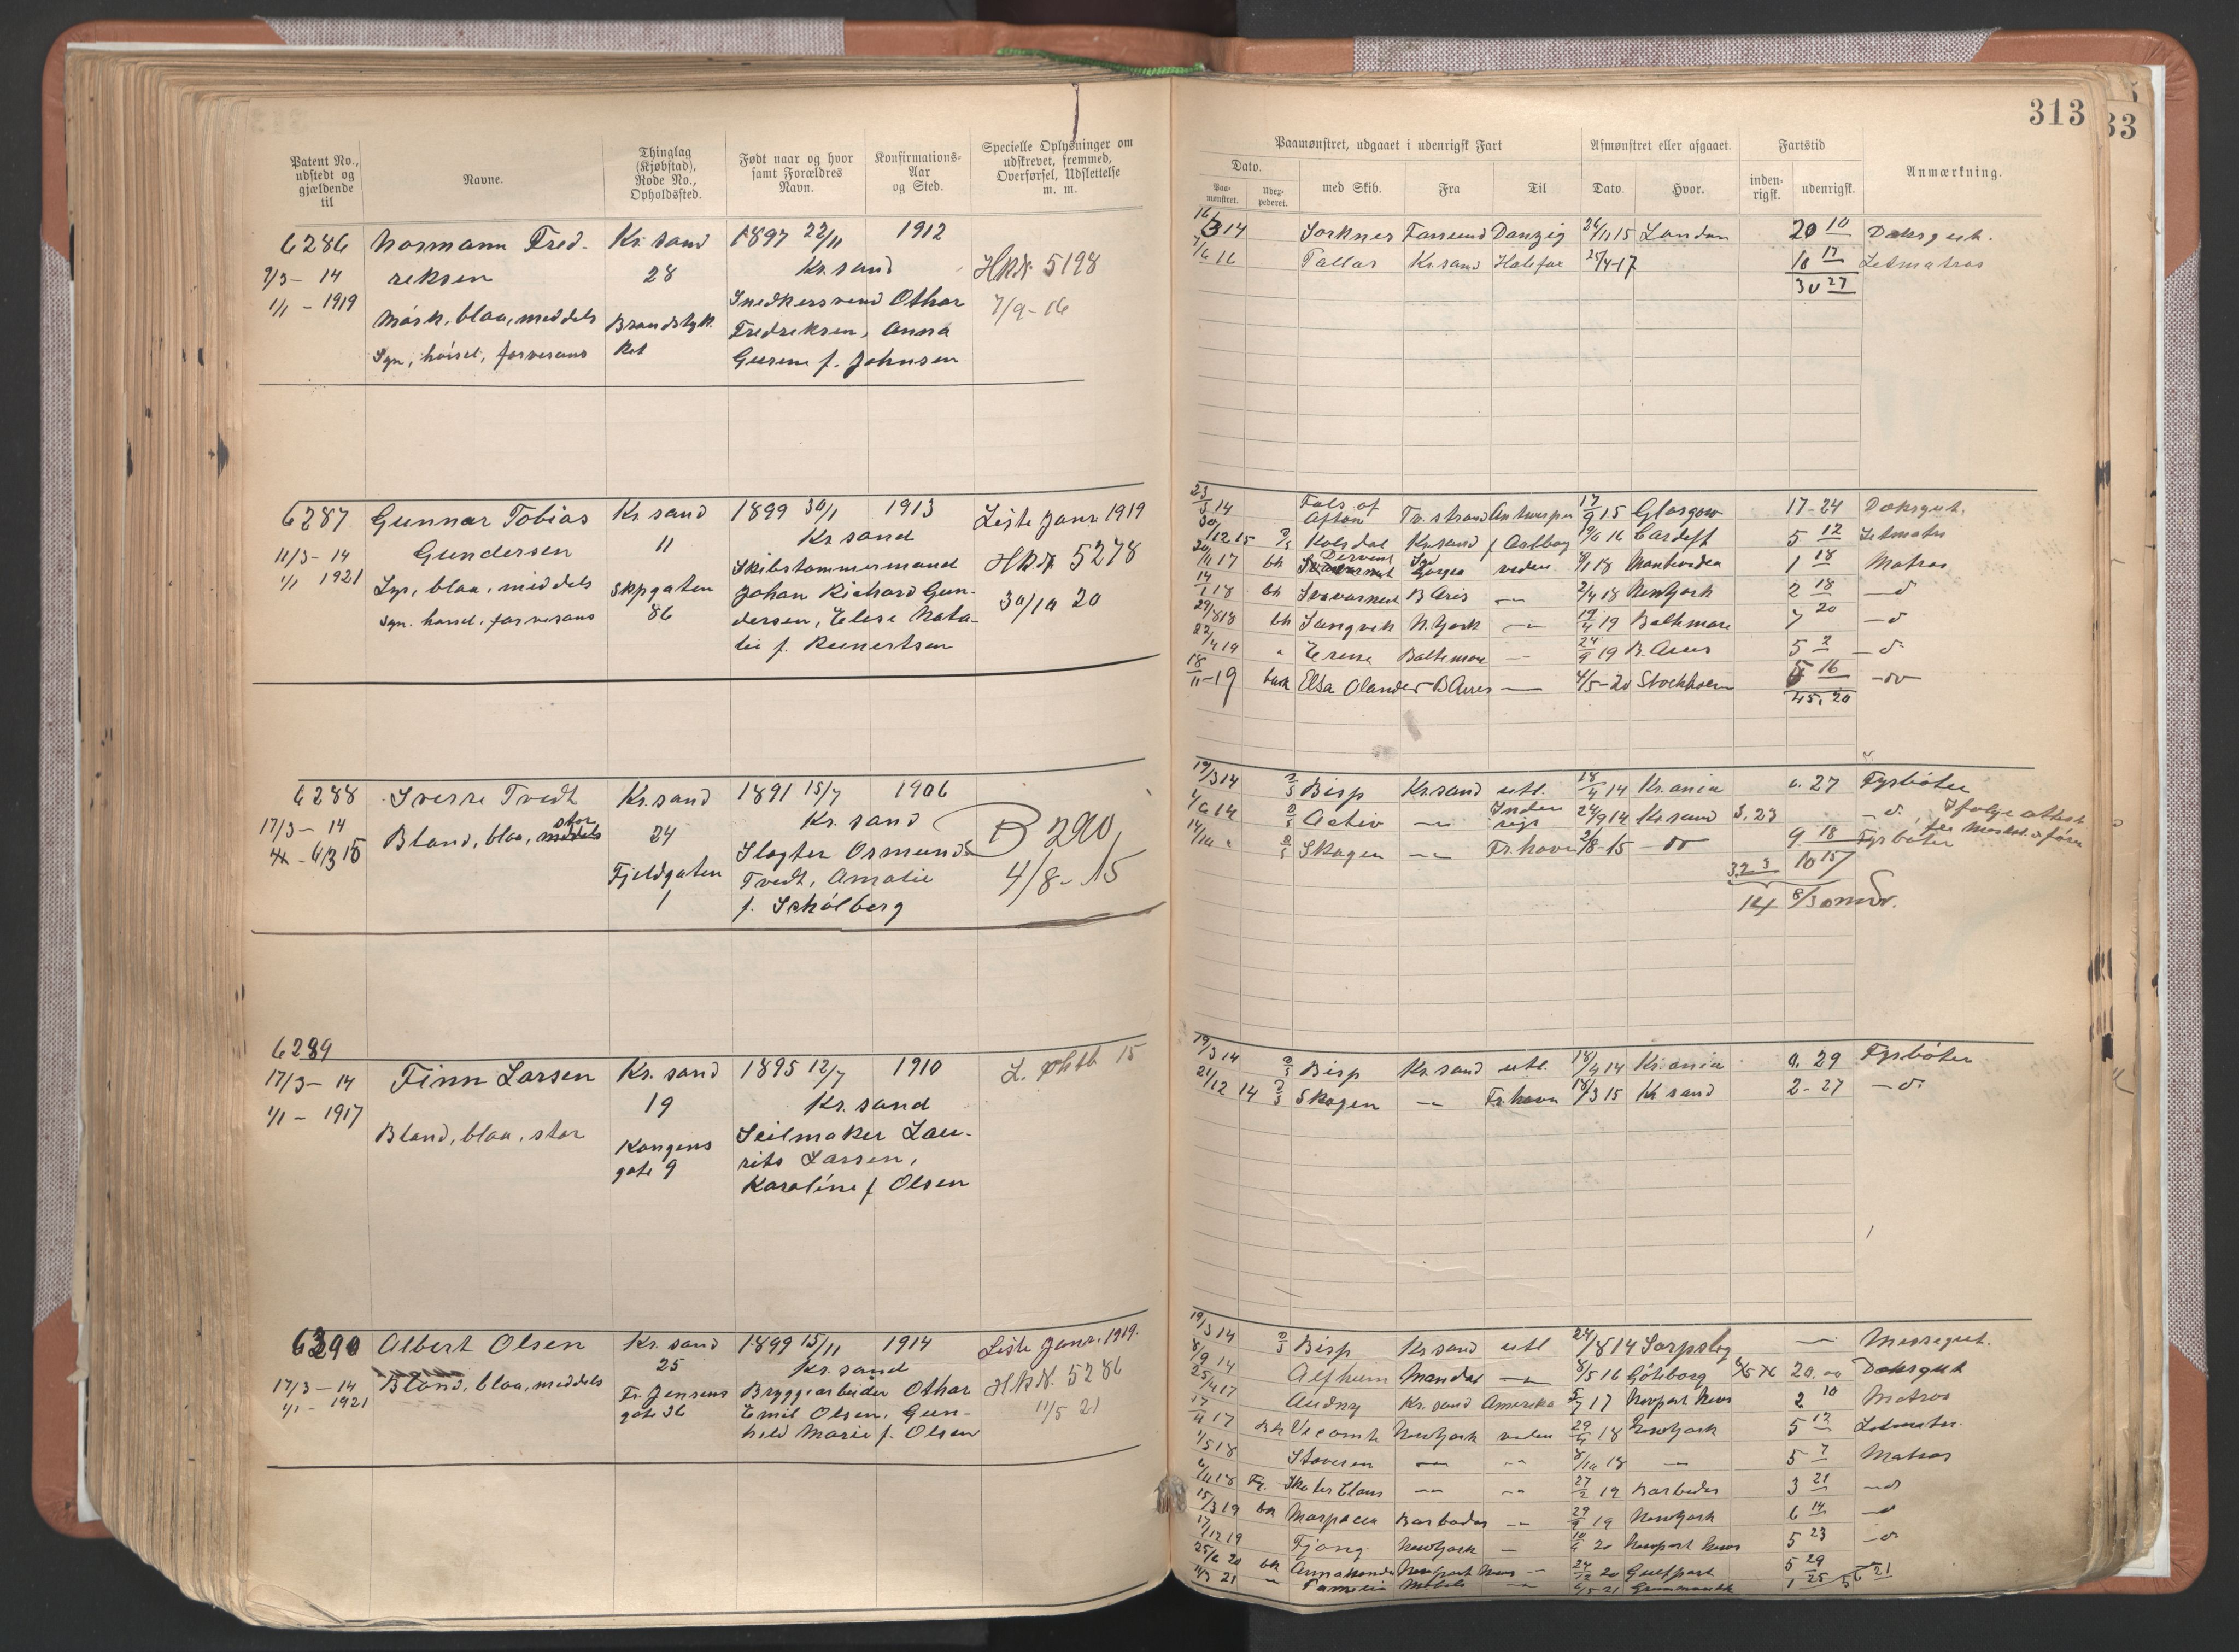 313
33
Patent No., udstedt og gjældende til
Navne.
Thinglag (Kjøbstad), Rode No., Opholdssted.
Født naar og hvor samt Forældres Navn.
Konfirmations-Aar og Sted.
Specielle Oplysninger om udskrevet, fremmed, Overførsel, Udslettelse m. m.
Paamønstret, udgaaet i udenrigsk Fart
Afmønstret eller afgaaet.
Fartstid
Anmærkning.
Dato.
Paa-mønstret.
Uder-pederet.
med Skib.
Fra
Til
Dato.
Hvor.
inden-rigsk.
udenrigsk.
6286 Normann Fred- Kr. sand 1897 22/11 1912
7/3 - 14 reksen 28 Kr. sand HkN 5198
1/1 - 1919 Snedkersvend Othar 7/9-16
Mørk, blaa, middels Brandstyk Fredreksen, Anna
Syn, hørsel, farvesans ket f. Johnsen
16/3 14 Sorknes Farsund Danzig 26/11 15 London 20 10 Dæksgut.
Pallas Kr.sand Halifax 25/4-17 10 17 Letmatros
30 27
6287 Gunnar Tobias Kr. sand 1899 30/1 1913 Liste Janr 1919
11/3 - 14 Gundersen 11 Kr sand HkN 5278
1/1 1921 Lys, blaa, middels Skpgaten Skibstømmermand 30/10 20
Syn. hørsel, farvesans 86 Johan Richard Gun-
dersen, Elise Nata-
lie f. Reinertsen
23/3 14 Fals of Afton Tv.strand Antwerpen 17/9 15 Glasgow 17-24 Dæksgut.
30/12 15 Kolsdal Kr.sand f Aalborg 16 Cardiff 5 12 Letmatr
20/11 17 bk verden 8/1 18 Montevideo 1 18 Matros
14/1 18 bk Svavarnut B Aires — 2/4 18 NewYork 2 18 — d
29/8 18 bk Songvik N. York — 19/4 19 Baltimore 7 20 — d
22/4 19 " Baltimore — 24/9 19 B. Aires 5 2 — d
18/11-19 bark Elsa Olander B Aires — 4/5-20 Stockholm 5 16 — do
45, 20
6288 Sverre Tvedt Kr. sand 1891 15/7 1906
17/3 - 14 Blond, blaa, middels stor 24 Kr. sand B 290,
4/3 15 Fjeldgaten Slagter Osmund 4/8-15
1 Tvedt, Amalie
f. Schølberg
19/3 14 Bisp Kr.sand utl. 18/4 14 Kr.ania 0. 27 Fyrbøter
4/6 14 Activ — Inden rigs 24/9 14 Kr. sand 3. 23 — d. Ifølge attest
14/10 " Skagen — Fr.havn 2/8-15 — do 9 18 Fyrbøter
10 15
6289
17/3 - 14 Finn Larsen Kr. sand 1895 12/7 1910
1/1 - 1917 19 Kr. sand
Blond, blaa, stor Kongens Seilmaker Lau-
gate 9 rits Larsen,
Karoline f Olsen
19/3 14 Bisp Kr. sand utl. 18/4 14 Kr.ania 0. 29 Fyrbøter
21/12 14 Skagen — Fr.havn 18/3 15 Kr sand 2-27 — d.
6290 Albert Olsen Kr. sand 1899 15/11 1914 Liste Janr. 1919.
25 Kr. sand HkN. 5286
17/3 - 14 Blond, blaa, middels Fr. Jensens Bryggearbeider Othar 11/5 21
1/1 - 1921 gate 36 Emil Olsen, Gun-
hild Marie f. Olsen
19/3 14 Bisp Kr sand utl 24/8 14 Sarpsborg — Messegut.
8/9 14 Alfheim Mandal — 8/5 16 Göteborg 20. 00 Dæksgut
25/4 17 Audny Kr. sand Amerika 5/7 17 Newport News 2 10 Matros
17/11 17 Bk NewYork verden 29/4 18 NewYork 5 12 Letmatr.
1/5 18 Staveren — — 8/10 18 — 5 7 Matros
— — 27/2 19 Barbados 3 21 — d
15/3 19 bk Barbados — 29/9 19 NewYork 6 14 — d
17/12 19 Fjong NewYork — 10/6 20 Newport News 5 23 — d.
25/6 20 bk Newport News — 24/12 20 Gulfport 5 29
21 — 21 1 25